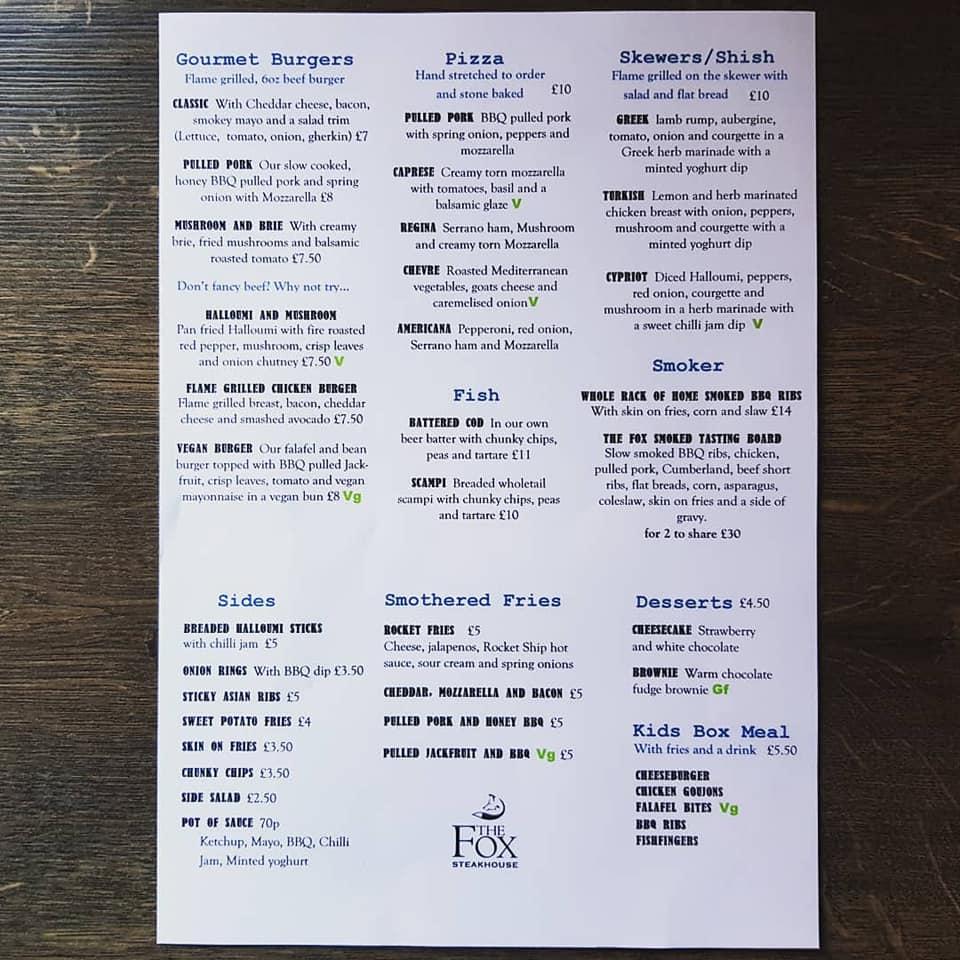 Gourmet Burgers
Flame grilled, 6oz beef burger
CLASSIC With Cheddar cheese, bacon,
smokey mayo and a salad trim
(Lettuce, tomato, onion, gherkin) £7
PULLED PORK Our slow cooked,
honey BBQ pulled pork and spring
onion with Mozzarella £8
MUSHROOM AND BRIE With creamy
brie, fried mushrooms and balsamic
roasted tomato £7.50
Don't fancy beef? Why not try...
HALLOUMI AND MUSHROOM
Pan fried Halloumi with fire roasted
red pepper, mushroom, crisp leaves
and onion chutney £7.50 V
FLAME GRILLED CHICKEN BURGER
Flame grilled breast, bacon, cheddar
cheese and smashed avocado £7.50
VEGAN BURGER Our falafel and bean
burger topped with BBQ pulled Jack-
fruit, crisp leaves, tomato and vegan
mayonnaise in a vegan bun £8 Vg
Pizza
Hand stretched to order
and stone baked £10
PULLED PORK BBQ pulled pork
with spring onion, peppers and
mozzarella
CAPRESE Creamy torn mozzarella
with tomatoes, basil and a
balsamic glaze V
REGINA Serrano ham, Mushroom
and creamy torn Mozzarella
CHEVRE Roasted Mediterranean
vegetables, goats cheese and
caremelised onion V
AMERICANA Pepperoni, red onion,
Serrano ham and Mozzarella
Fish
BATTERED COD In our own
beer batter with chunky chips,
peas and tartare £11
SCAMPI Breaded wholetail
scampi with chunky chips, peas
and tartare £10
Skewers/Shish
Flame grilled on the skewer with
salad and flat bread £10
GREEK lamb rump, aubergine,
tomato, onion and courgette in a
Greek herb marinade with a
minted yoghurt dip
TURKISH Lemon and herb marinated
chicken breast with onion, peppers,
mushroom and courgette with a
minted yoghurt dip
CYPRIOT Diced Halloumi, peppers,
red onion, courgette and
mushroom in a herb marinade with
a sweet chilli jam dip V
Smoker
WHOLE RACK OF HOME SMOKED BBQ RIBS
With skin on fries, corn and slaw £14
THE FOX SMOKED TASTING BOARD
Slow smoked BBQ ribs, chicken,
pulled pork, Cumberland, beef short
ribs, flat breads, corn, asparagus,
coleslaw, skin on fries and a side of
gravy.
for 2 to share £30
Sides
BREADED HALLOUMI STICKS
with chilli jam £5
ONION RINGS With BBQ dip £3.50
STICKY ASIAN RIBS £5
SWEET POTATO FRIES £4
SKIN ON FRIES £3.50
CHUNKY CHIPS £3.50
SIDE SALAD £2.50
POT OF SAUCE 70p
Ketchup, Mayo, BBQ, Chilli
Jam, Minted yoghurt
Smothered Fries
ROCKET FRIES £5
Cheese, jalapenos, Rocket Ship hot
sauce, sour cream and spring onions
CHEDDAR, MOZZARELLA AND BACON £5
PULLED PORK AND HONEY BBQ £5
PULLED JACKFRUIT AND BBQ Vg £5
THE
FOX
STEAKHOUSE
Desserts £4.50
CHEESECAKE Strawberry
and white chocolate
BROWNIE Warm chocolate
fudge brownie Gf
Kids Box Meal
With fries and a drink £5.50
CHEESEBURGER
CHICKEN GOUJONS
FALAFEL BITES Vg
BBQ RIBS
FISHFINGERS